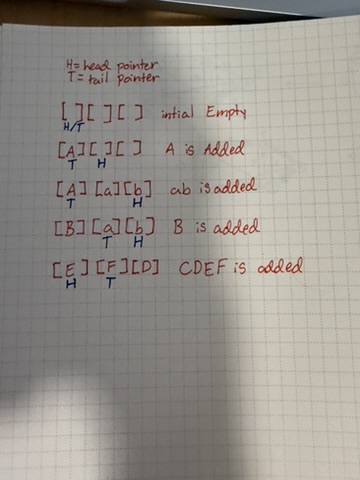 H= head pointer
T= tail pointer
[ ][ ][ ] intial Empty
H/T
[A][ ][ ] A is Added
T H
[A][a][b] ab is added
T H
[B][a][b] B is added
T H
[E][F][D] CDEF is added
H T